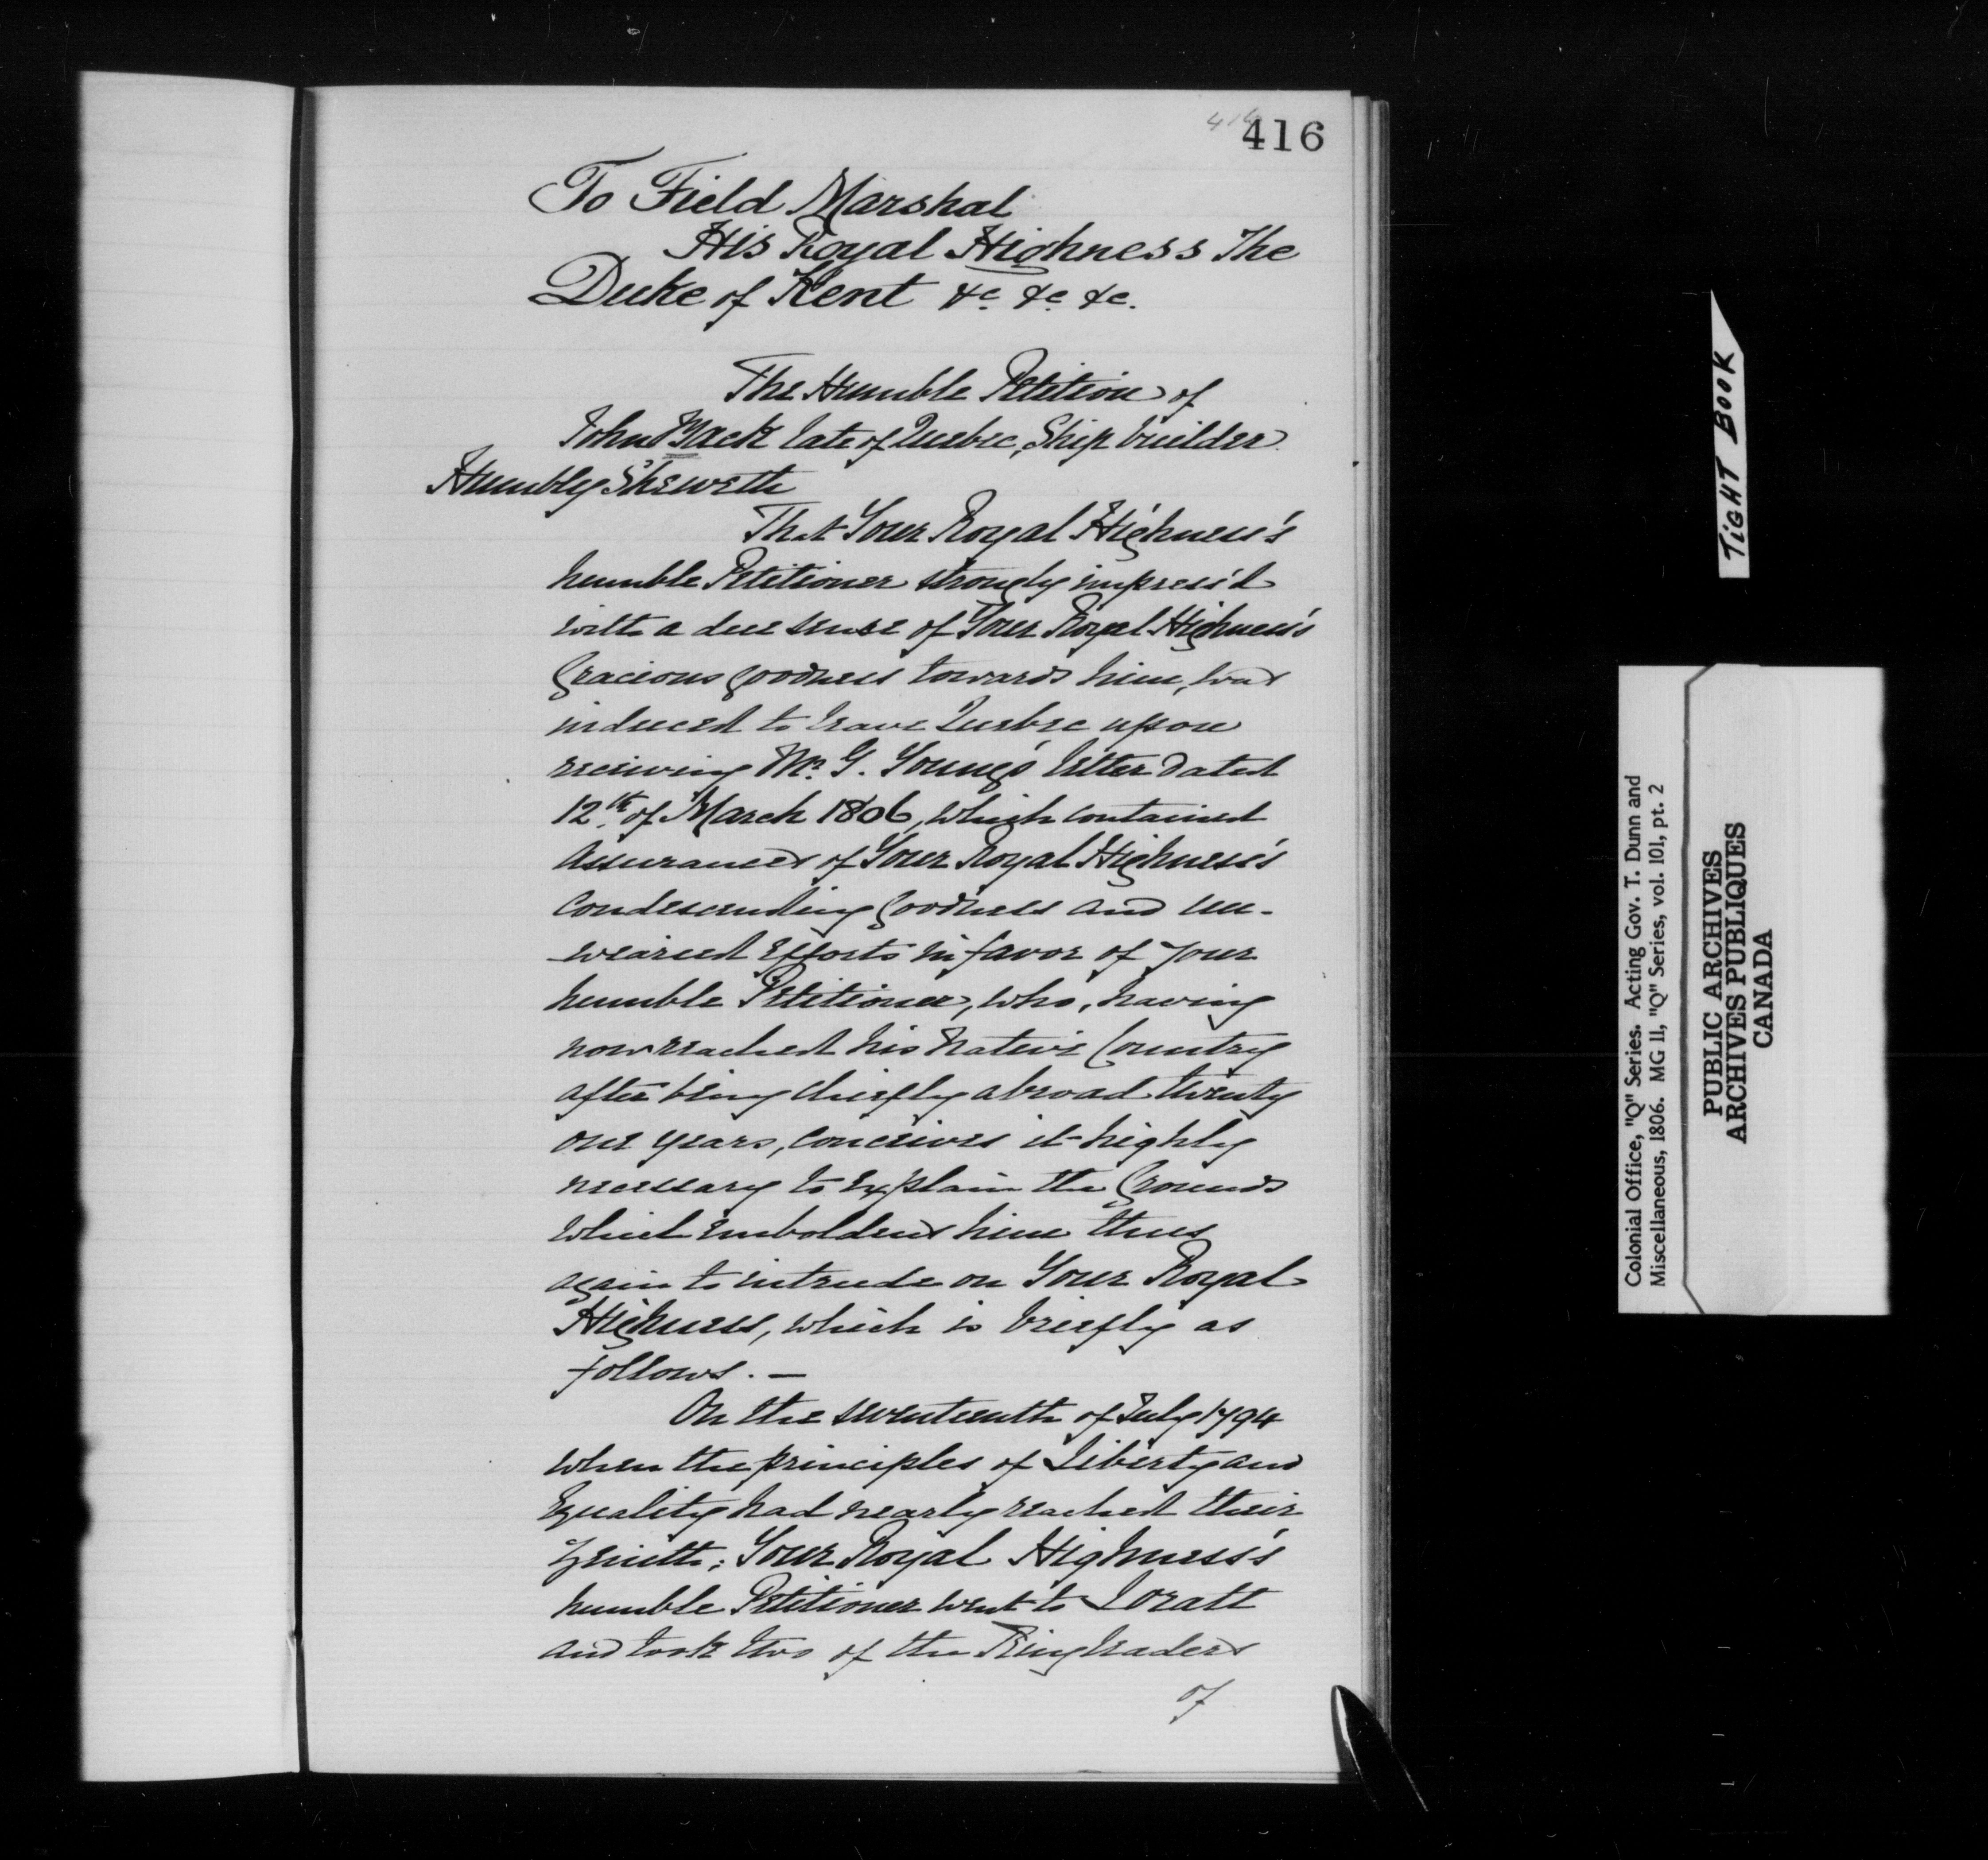 416
416
To Field Marshal
His Royal Highness The
Duke of Kent &c. &c. &c.
The Humble Petition of
John Black late of Quebec, Ship builder
Humbly Sheweth
That Your Royal Highness's
humble Petitioner strongly impress'd
with a due sense of Your Royal Highness's
Gracious goodness towards him, was
induced to leave Quebec upon
receiving Mr. G. Young's letter dated
12th of March 1806, which contained
assurances of Your Royal Highness's
Condescending Goodness and un-
wearied efforts in favor of your
humble Petitioner, who, having
now reached his Native Country
after being chiefly abroad twenty
one years, conceives it highly
necessary to explain the Grounds
which emboldens him thus
again to intrude on Your Royal
Highness, which is briefly as
follows. —
On the seventeenth of July 1794
when the principles of Liberty and
Equality had nearly reached their
Zenith; Your Royal Highness's
humble Petitioner went to Loratt
and took two of the Ringleaders
of
TIGHT BOOK
Colonial Office, "Q" Series. Acting Gov. T. Dunn and
Miscellaneous, 1806. MG 11, "Q" Series, vol. 101, pt. 2
PUBLIC ARCHIVES
ARCHIVES PUBLIQUES
CANADA